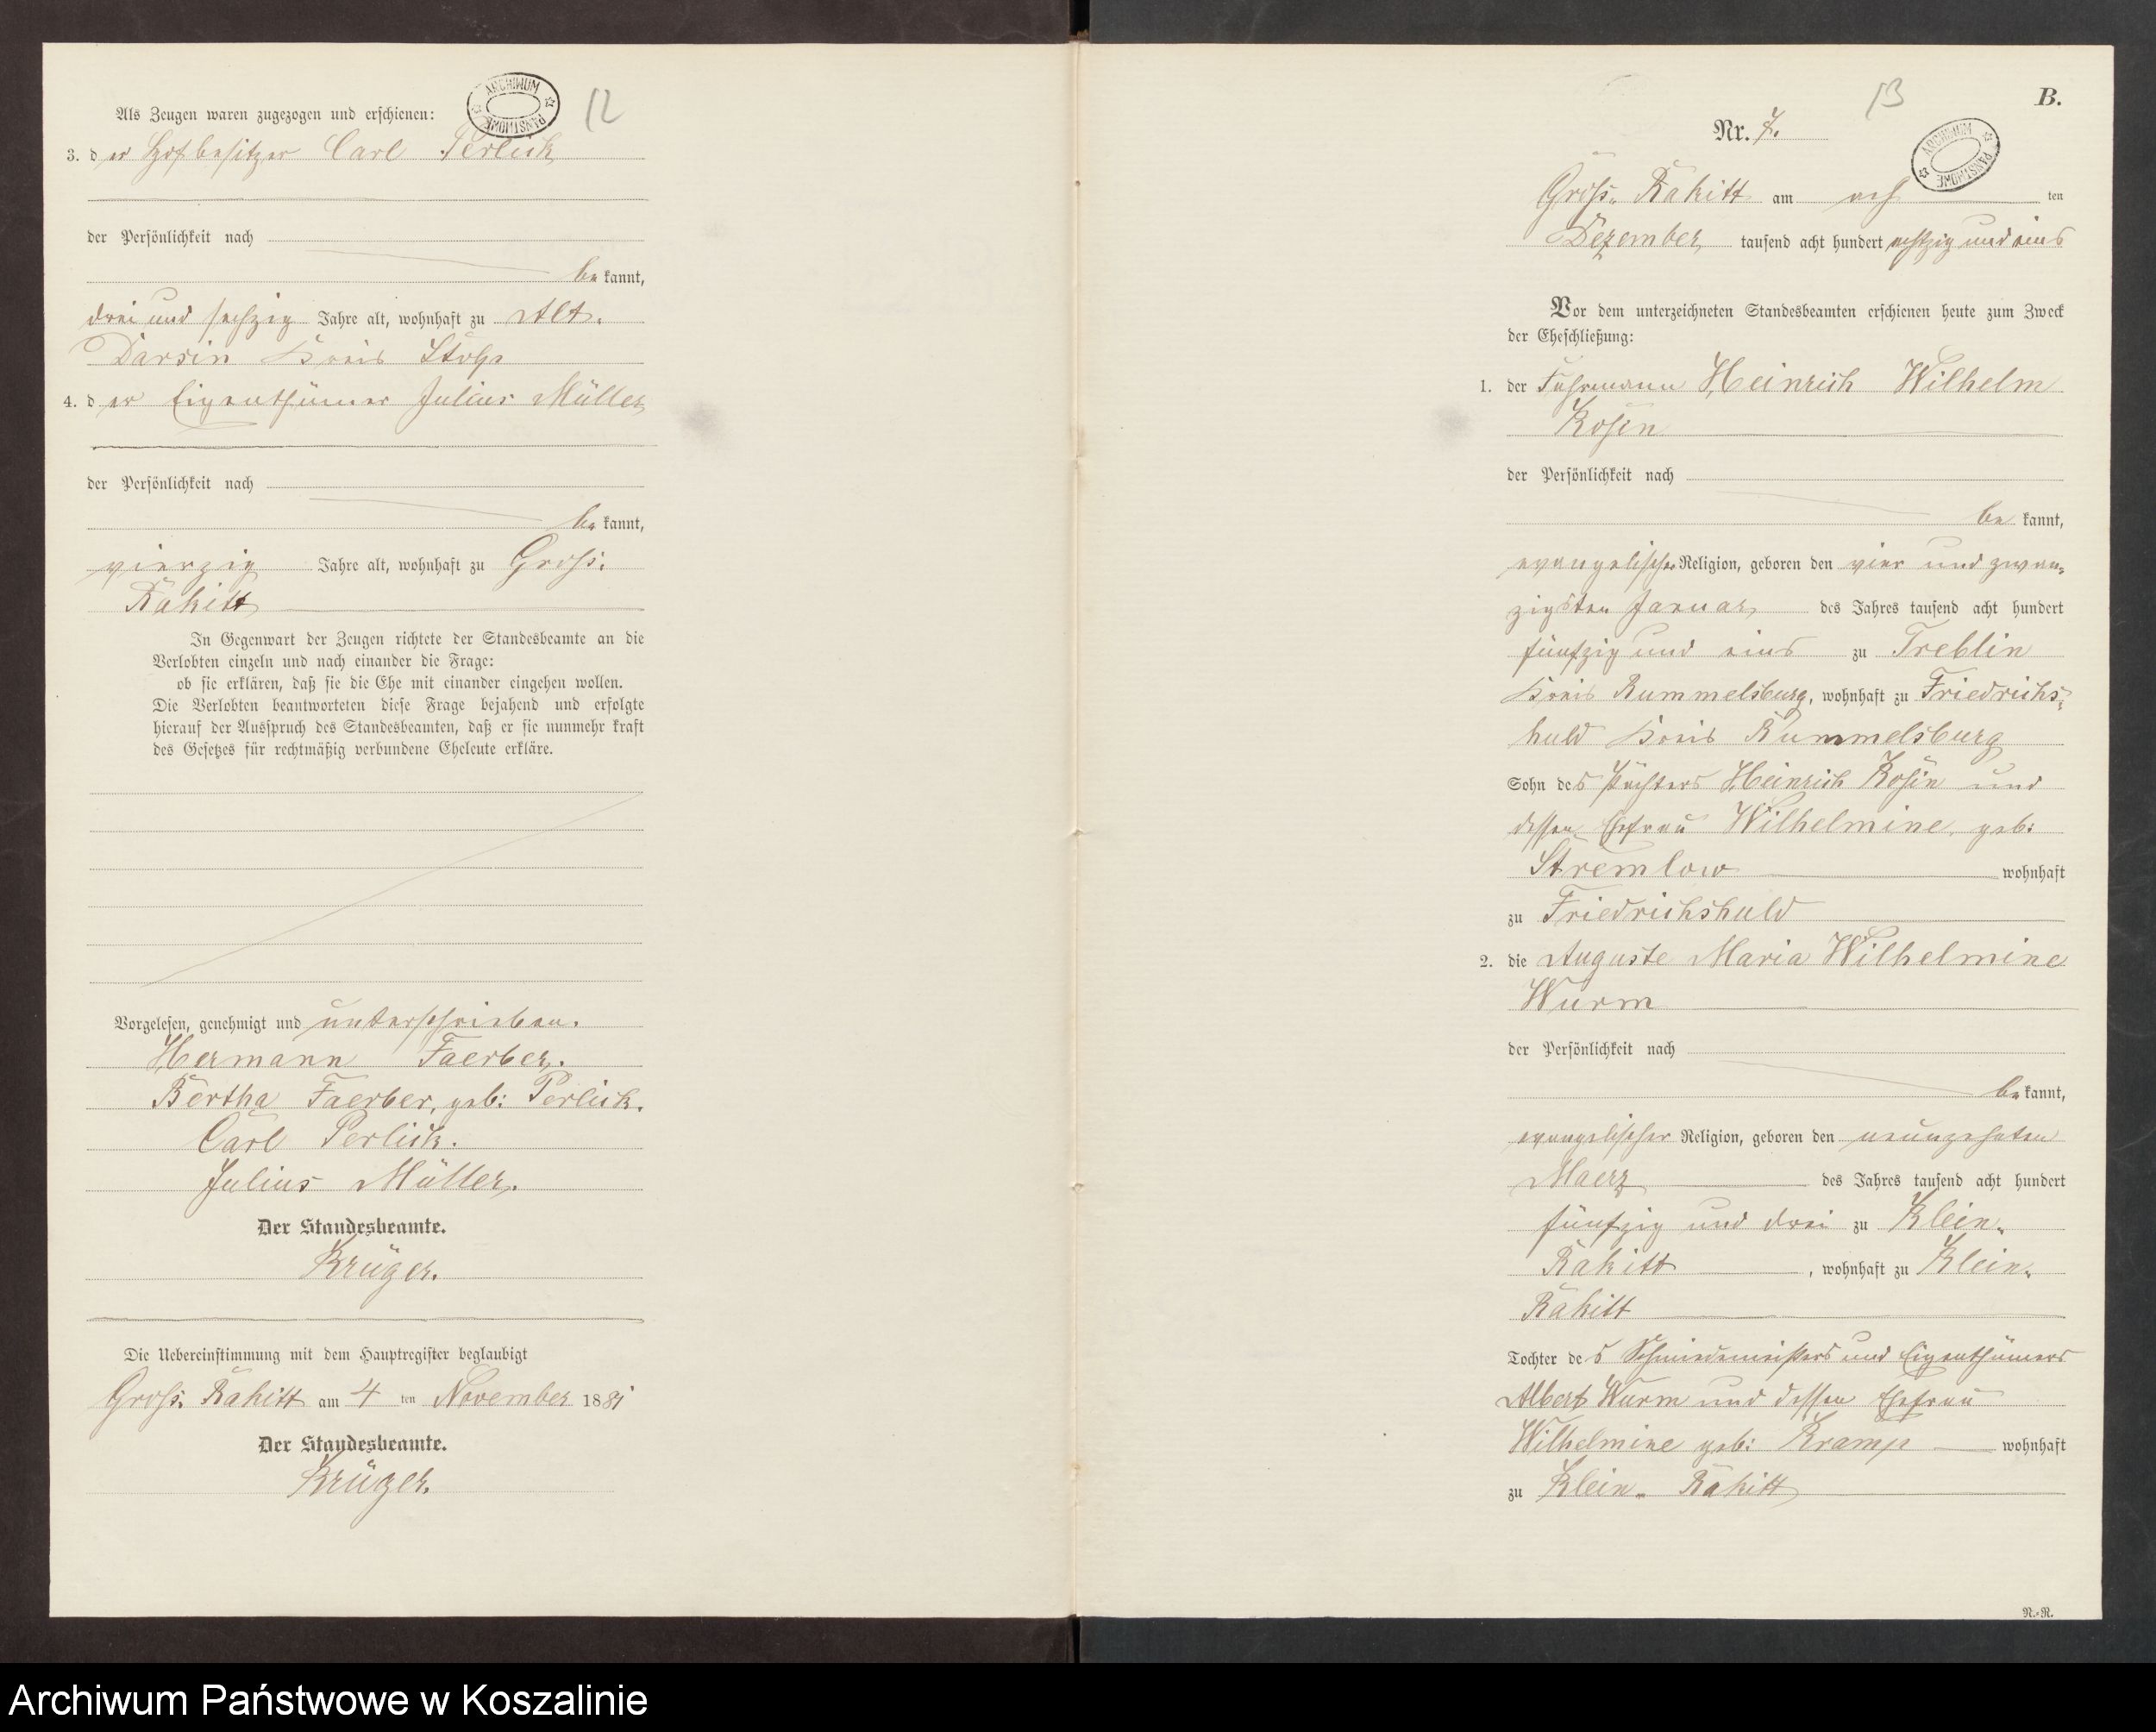 Als Zeugen waren zugezogen und erschienen:
ARCHIWUM PAŃSTWOWE
12
3. der Hofbesitzer Carl Perlick
der Persönlichkeit nach
be kannt,
drei und sechzig Jahre alt, wohnhaft zu Alt-
Darsin Kreis Stolp
4. der Eigenthümer Julius Müller
der Persönlichkeit nach
be kannt,
vierzig Jahre alt, wohnhaft zu Gross-
Rakitt
In Gegenwart der Zeugen richtete der Standesbeamte an die
Verlobten einzeln und nach einander die Frage:
ob sie erklären, daß sie die Ehe mit einander eingehen wollen.
Die Verlobten beantworteten diese Frage bejahend und erfolgte
hierauf der Ausspruch des Standesbeamten, daß er sie nunmehr kraft
des Gesetzes für rechtmäßig verbundene Eheleute erkläre.
Vorgelesen, genehmigt und unterschrieben.
Hermann Faerber.
Bertha Faerber, geb: Perlick.
Carl Perlick.
Julius Müller.
Der Standesbeamte.
Krüger.
Die Uebereinstimmung mit dem Hauptregister beglaubigt
Gross-Rakitt am 4 ten November 1881
Der Standesbeamte.
Krüger.
13
B.
Nr. 7.
ARCHIWUM PAŃSTWOWE
Gross-Rakitt am ach ten
Dezember tausend acht hundert achtzig und eins
Vor dem unterzeichneten Standesbeamten erschienen heute zum Zweck
der Eheschließung:
1. der Fuhrmann Heinrich Wilhelm
Rosin
der Persönlichkeit nach
be kannt,
evangelischer Religion, geboren den vier und zwan-
zigsten Januar des Jahres tausend acht hundert
fünfzig und eins zu Treblin
Kreis Rummelsburg, wohnhaft zu Friedrichs-
huld Kreis Rummelsburg
Sohn des Pächters Heinrich Rosin und
dessen Ehefrau Wilhelmine geb:
Stremlow wohnhaft
zu Friedrichshuld
2. die Auguste Maria Wilhelmine
Wurm
der Persönlichkeit nach
be kannt,
evangelischer Religion, geboren den neunzehnten
Maerz des Jahres tausend acht hundert
fünfzig und drei zu Klein-
Rakitt, wohnhaft zu Klein-
Rakitt
Tochter des Schmiedemeisters und Eigenthümers
Albert Wurm und dessen Ehefrau
Wilhelmine geb: Kramp wohnhaft
zu Klein-Rakitt
N.-N.
Archiwum Państwowe w Koszalinie